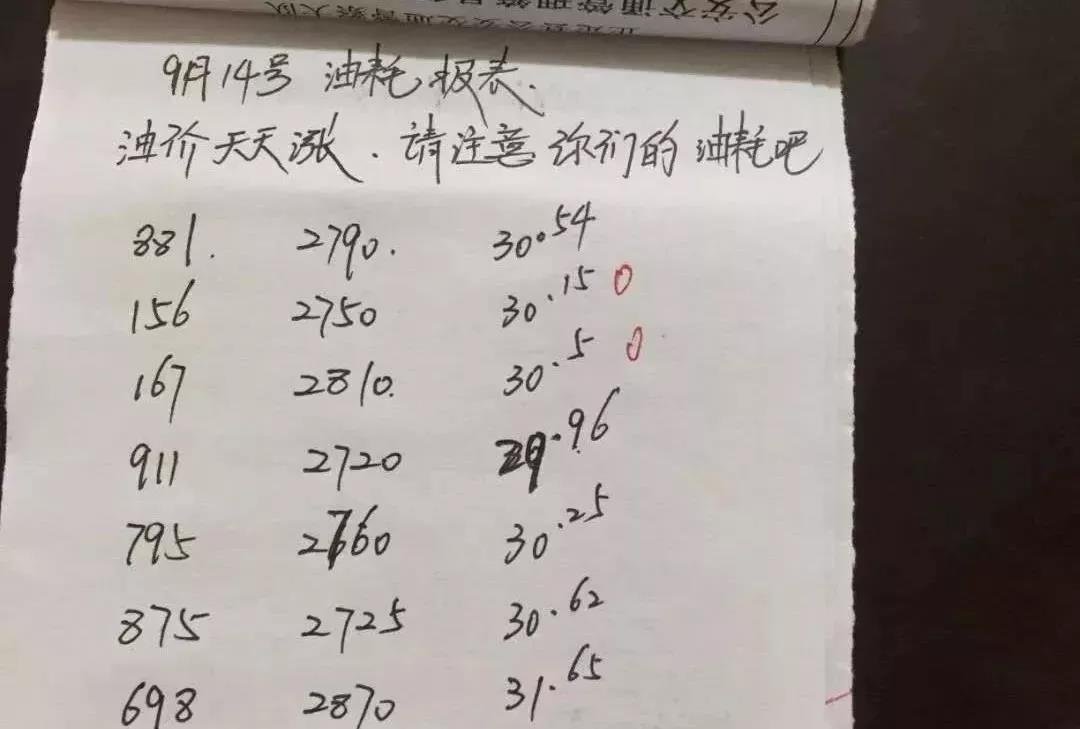 公安交通管理
9月14号 油耗报表.
油价天天涨.请注意你们的油耗吧
881. 2790. 30.54
156 2750 30.15 0
167 2810. 30.5 0
911 2720 29.96
795 2760 30.25
875 2725 30.62
698 2870 31.65